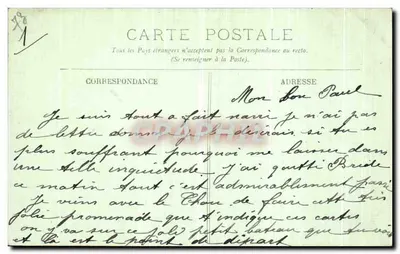 70
1
CARTE POSTALE
Tous les Pays étrangers n'acceptent pas la Correspondance au recto.
(Se renseigner à la Poste).
CORRESPONDANCE
ADRESSE
Mon bon Paul
Je suis tout a fait navré je n'ai pas
de lettre je désirais si tu es
plus souffrant pourquoi me laisser dans
une telle inquietude - j'ai quitté
ce matin tout c'est admirablement passé
Je viens avec le de faire cette très
jolie promenade que t'indique ces cartes
on y va sur ce joli petit bateau que tu vois
et là est le point de départ